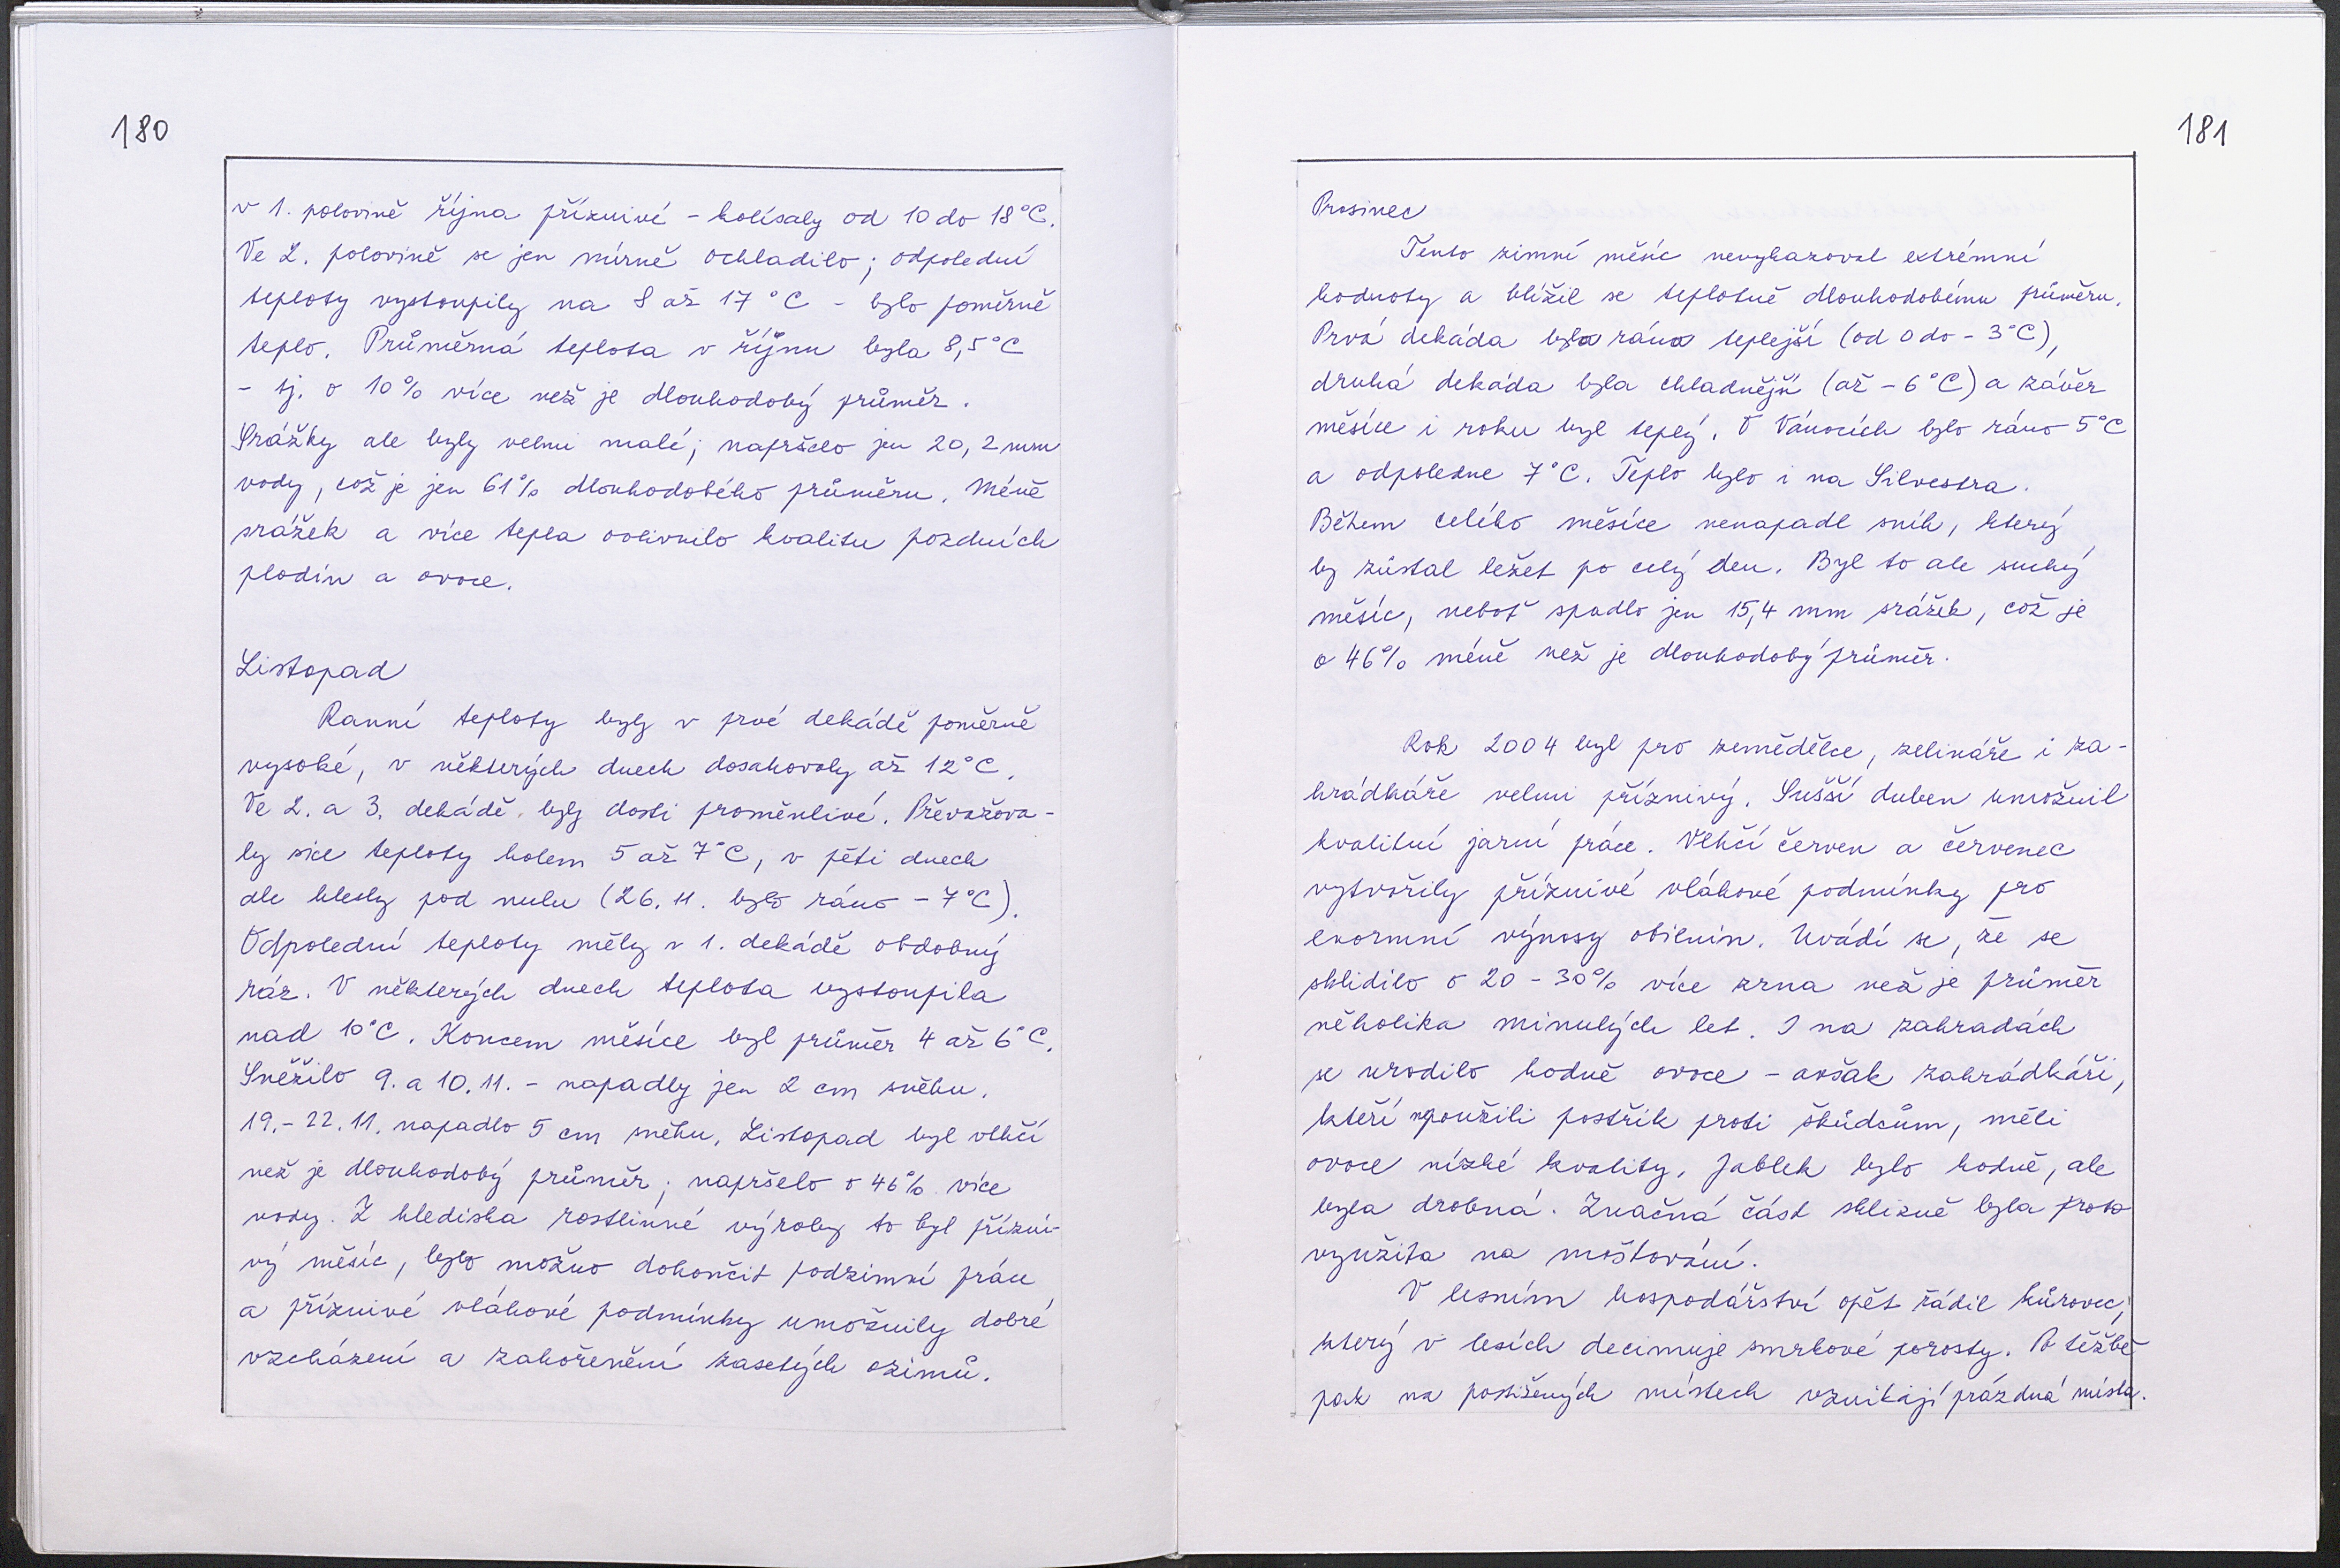 180
v 1. polovině října příznivé - kolísaly od 10 do 18°C.
Ve 2. polovině se jen mírně ochladilo; odpolední
teploty vystoupily na 8 až 17°C - bylo poměrně
teplo. Průměrná teplota v říjnu byla 8,5°C
- tj. o 10% více než je dlouhodobý průměr.
Srážky ale byly velmi malé; napršelo jen 20,2 mm
vody, což je jen 61% dlouhodobého průměru. Méně
srážek a více tepla ovlivnilo kvalitu pozdních
plodin a ovoce.
Listopad
Ranní teploty byly v prvé dekádě poměrně
vysoké, v některých dnech dosahovaly až 12°C.
Ve 2. a 3. dekádě byly dosti proměnlivé. Převažova-
ly sice teploty kolem 5 až 7°C, v pěti dnech
ale klesly pod nulu (26.11. bylo ráno -7°C).
Odpolední teploty měly v 1. dekádě obdobný
ráz. V některých dnech teplota vystoupila
nad 10°C. Koncem měsíce byl průměr 4 až 6°C.
Sněžilo 9. a 10.11. - napadly jen 2 cm sněhu.
19.-22.11. napadlo 5 cm sněhu. Listopad byl vlhčí
než je dlouhodobý průměr; napršelo o 46% více
vody. Z hlediska rostlinné výroby to byl přízni-
vý měsíc, bylo možno dokončit podzimní práce
a příznivé vláhové podmínky umožnily dobré
vzcházení a zakořenění zasetých ozimů.
181
Prosinec
Tento zimní měsíc nevykazoval extrémní
hodnoty a blížil se teplotně dlouhodobému průměru.
Prvá dekáda byla rána teplejší (od 0 do -3°C),
druhá dekáda byla chladnější (až -6°C) a závěr
měsíce i roku byl teplý. O Vánocích bylo ráno 5°C
a odpoledne 7°C. Teplo bylo i na Silvestra.
Během celého měsíce nenapadl sníh, který
by zůstal ležet po celý den. Byl to ale suchý
měsíc, neboť spadlo jen 15,4 mm srážek, což je
o 46% méně než je dlouhodobý průměr.
Rok 2004 byl pro zemědělce, zelináře i za-
hrádkáře velmi příznivý. Sušší duben umožnil
kvalitní jarní práce. Vlhčí červen a červenec
vytvořily příznivé vláhové podmínky pro
enormní výnosy obilnin. Uvádí se, že se
sklidilo o 20 - 30% více zrna než je průměr
několika minulých let. I na zahradách
se urodilo hodně ovoce - avšak zahrádkáři,
kteří nepoužili postřik proti škůdcům, měli
ovoce nízké kvality. Jablek bylo hodně, ale
byla drobná. Značná část sklizně byla proto
využita na moštování.
V lesním hospodářství opět řádil kůrovec,
který v lesích decimuje smrkové porosty. Po těžbě
pak na postižených místech vznikají prázdná místa.